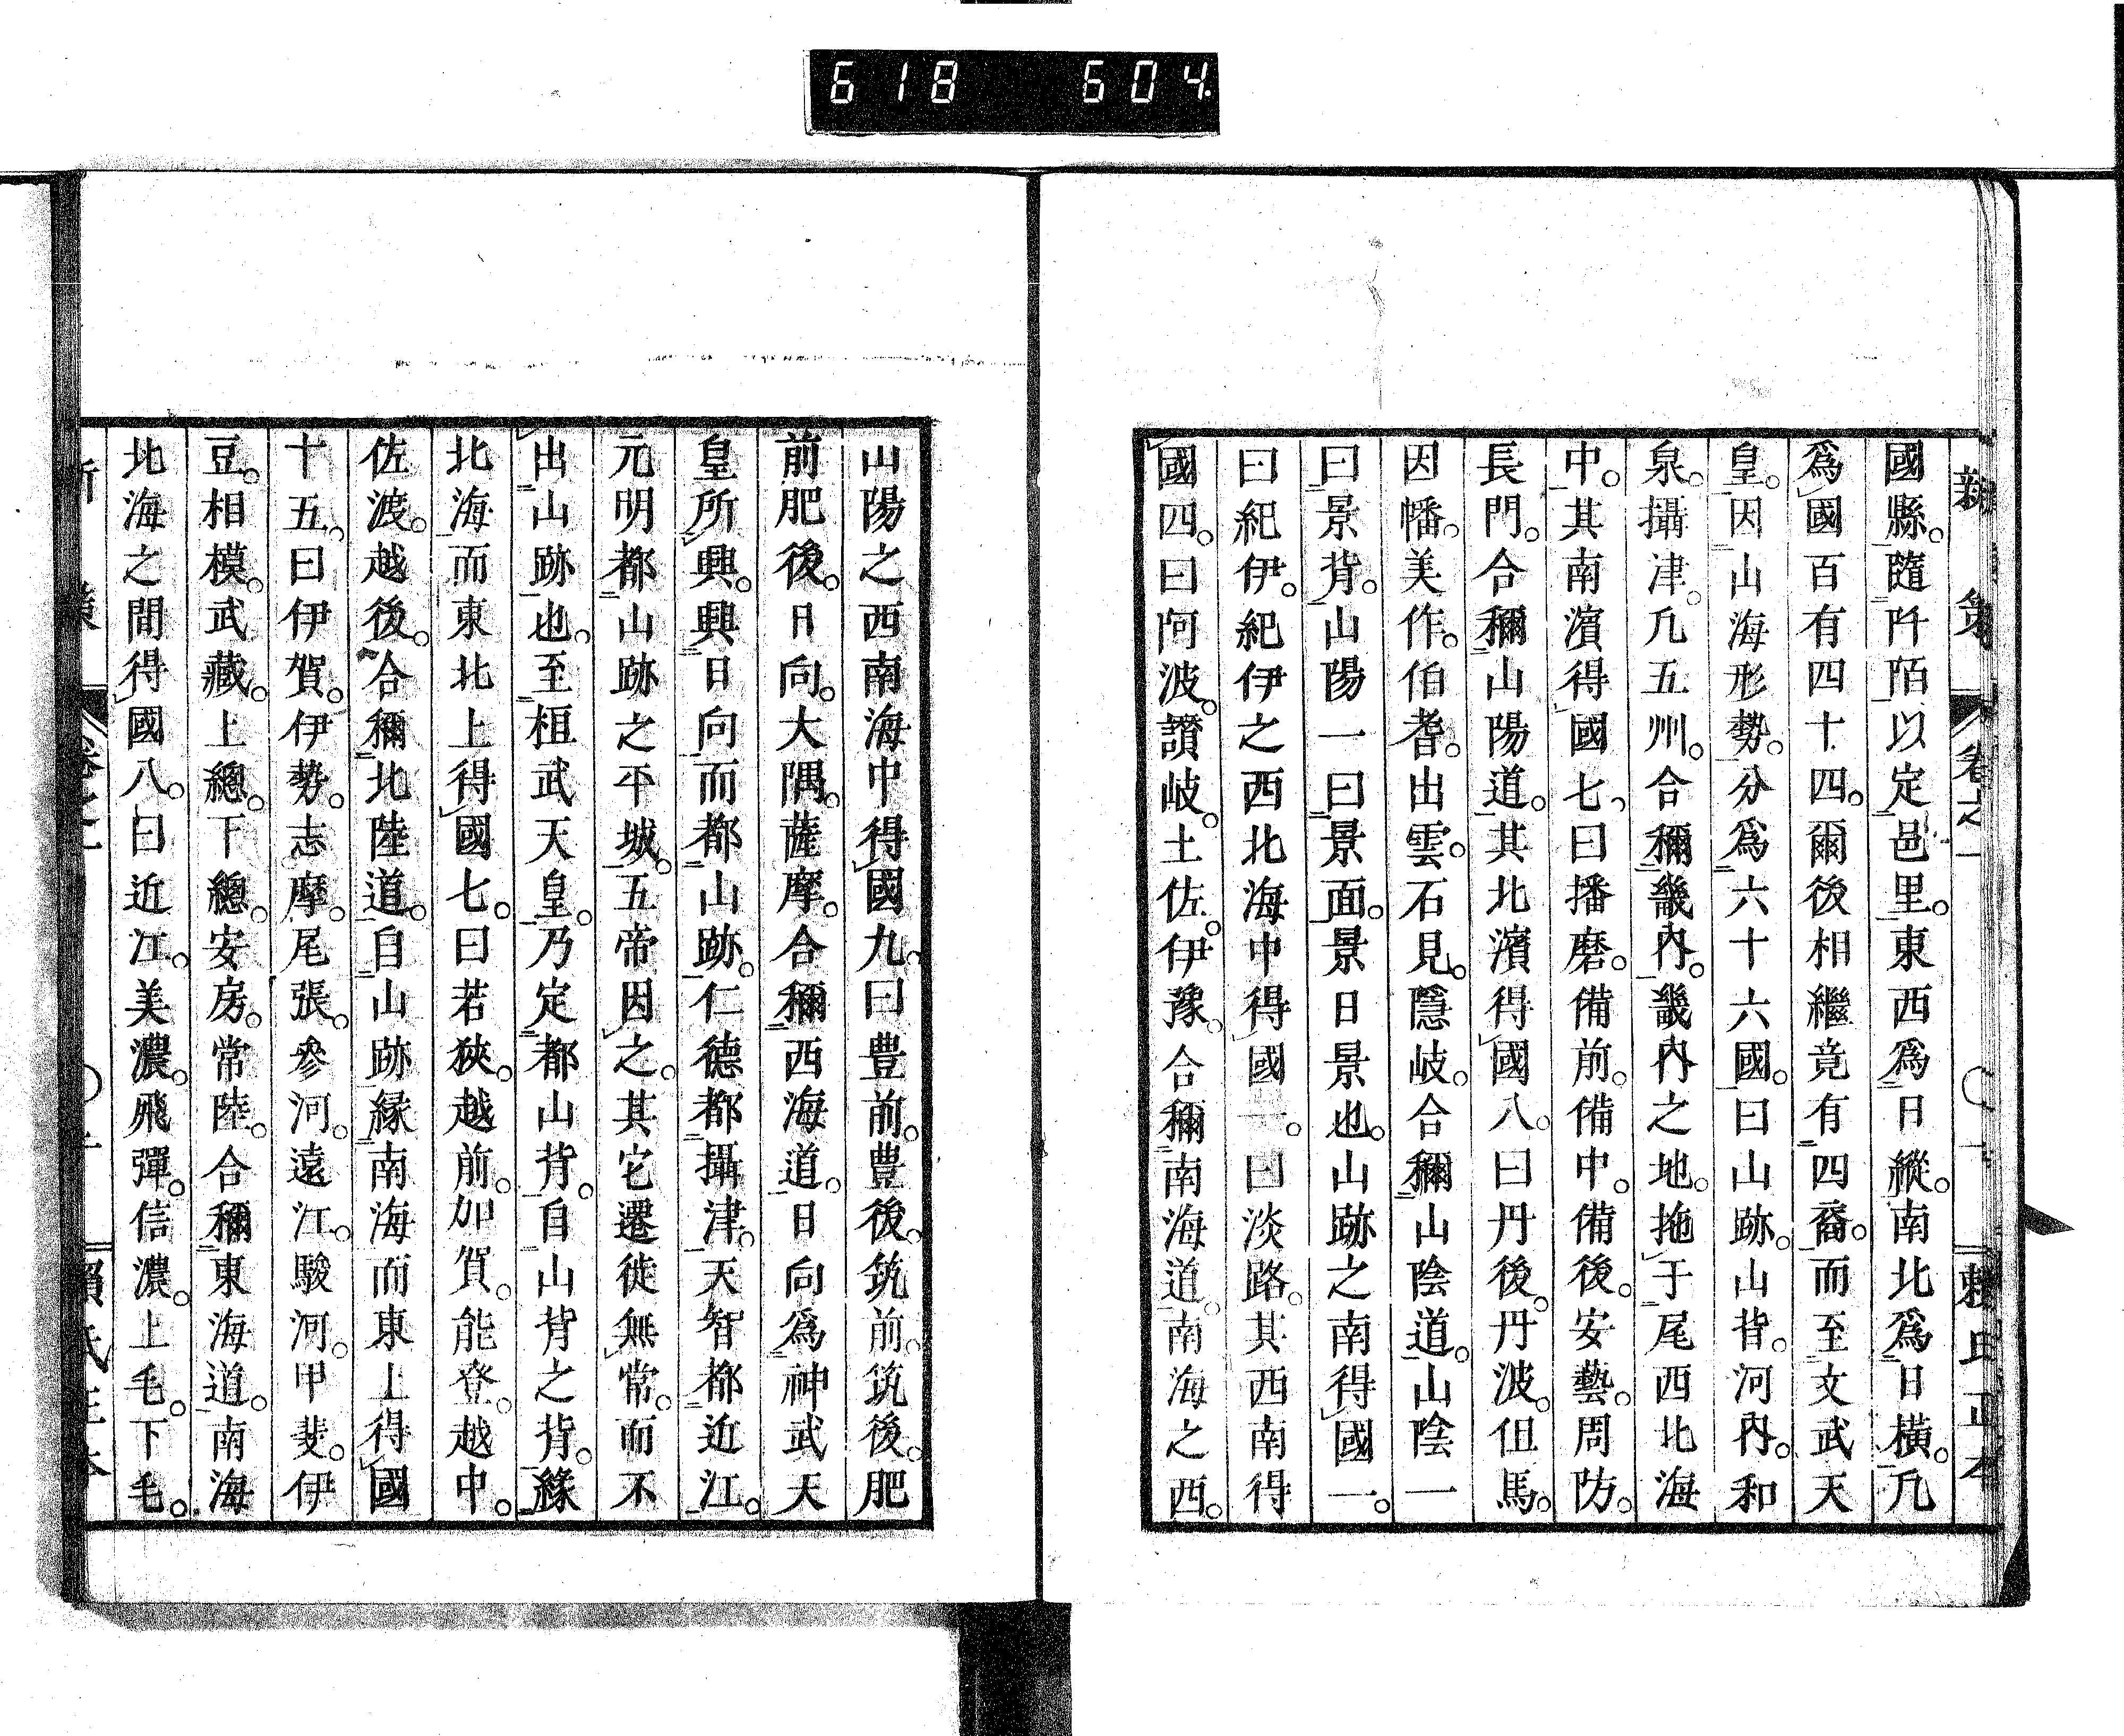 618 604.
國縣。隨阡陌以定邑里。東西爲日縱。南北爲日橫。凡
爲國百有四十四。爾後相繼竟有四裔。而至文武天
皇。因山海形勢。分爲六十六國。曰山跡。山背。河內。和
泉。攝津。凡五州。合稱畿內。畿內之地。拖于尾西北海
中。其南濱得國七。曰播磨。備前。備中。備後。安藝。周防。
長門。合稱山陽道。其北濱得國八。曰丹後。丹波。但馬。
因幡。美作。伯耆。出雲。石見。隱岐。合稱山陰道。山陰一
曰景背。山陽一曰景面。景日景也。山跡之南得國一。
曰紀伊。紀伊之西北海中得國一。曰淡路。其西南得
國四。曰阿波。讃岐。土佐。伊豫。合稱南海道。南海之西。
山陽之西南海中得國九。曰豊前。豊後。筑前。筑後。肥
前肥後。日向。大隅。薩摩。合稱西海道。日向爲神武天
皇所興。興日向而都山跡。仁德都攝津。天智都近江。
元明都山跡之平城。五帝因之。其它遷徙無常。而不
出山跡也。至桓武天皇。乃定都山背。自山背之背。緣
北海而東北上得國七。曰若狹。越前。加賀。能登。越中。
佐渡。越後。合稱北陸道。自山跡緣南海而東上得國
十五。曰伊賀。伊勢。志摩。尾張。參河。遠江。駿河。甲斐。伊
豆。相模。武藏。上總。下總。安房。常陸。合稱東海道。南海
北海之間得國八。曰近江。美濃。飛彈。信濃。上毛。下毛。